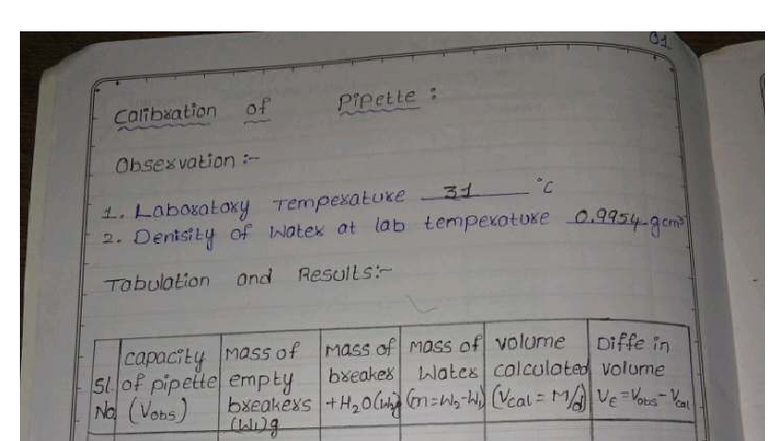 01
Calibration of Pipette :
Observation :-
1. Laboratory Temperature 31 °C
2. Denisity of Water at lab temperature 0.9954 gcm³
Tabulation and Results:-
Sl. No
capacity of pipette (Vobs)
Mass of empty breakers (W1)g
Mass of breaker + H2O(W2)g
Mass of Water (m=W2-W1)
volume calculated (Vcal = M/d)
Diffe in volume VE = Vobs - Vcal